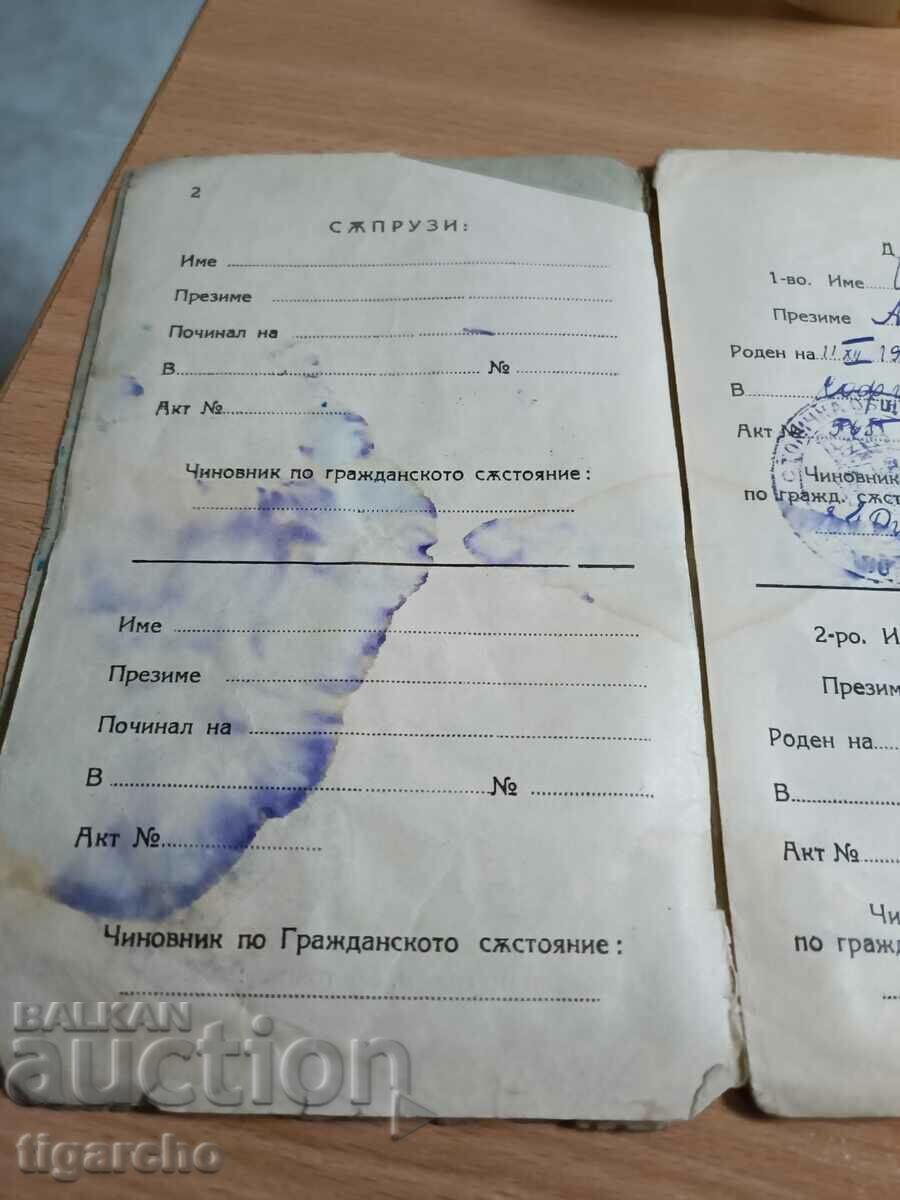 2
СѪПРУЗИ:
Име
Презиме
Починал на
В № 
Акт №
Чиновник по гражданското сѫстояние:
Име
Презиме
Починал на
В №
Акт №
Чиновник по Гражданското сѫстояние:
Д
1-во. Име
Презиме
Роден на 11 XII 19
В
Акт №
СТОЛИЧНА ОБЩ
Чиновник
по гражд. сѫст
2-ро. И
Презим
Роден на
В
Акт №
Чи
по гражд
BALKAN
auction
tigarcho